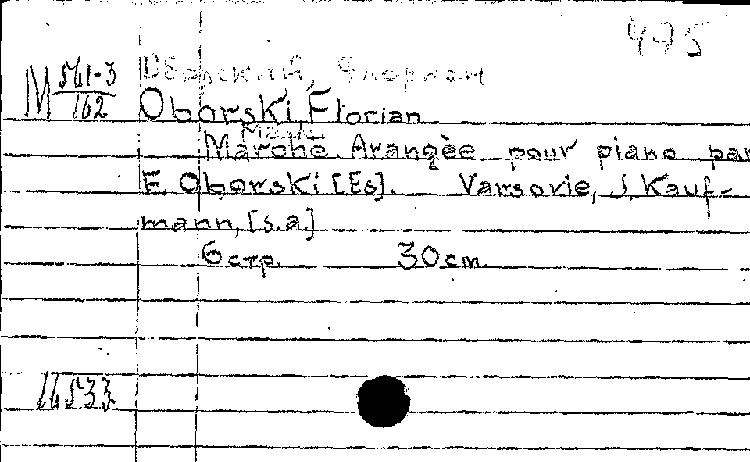 475
М 561-3/162
Оборский, Флориан
Oborski, Florian
Marche. Arangèe pour piano par
F. Oborski [Es]. Varsovie, J. Kauf-
mann, [s.a.]
6 стр. 30 cm.
16533